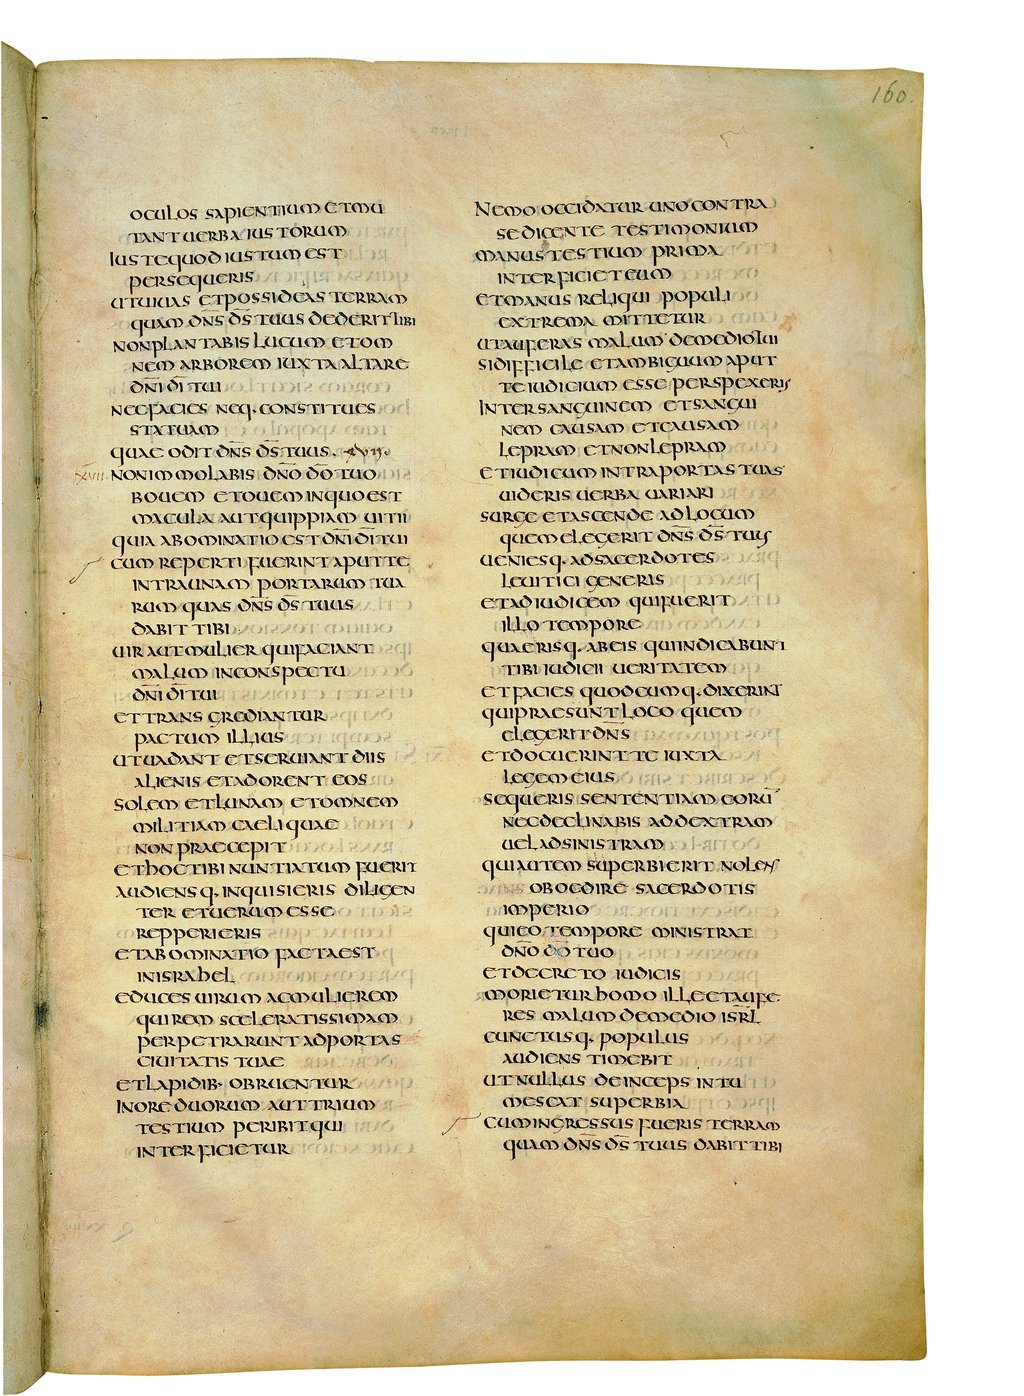 160.
OCULOS SAPIENTIUM ET MU
TANT UERBA IUSTORUM
IUSTE QUOD IUSTUM EST
PERSEQUERIS
UT UIUAS ET POSSIDEAS TERRAM
QUAM DN̄S D̄S TUUS DEDERIT TIBI
NON PLANTABIS LUCUM ET OM
NEM ARBOREM IUXTA ALTARE
DN̄I D̄I TUI
NEC FACIES NEQ· CONSTITUES
STATUAM
QUAE ODIT DN̄S D̄S TUUS. XVII.
XVII NON IMMOLABIS DN̄O D̄O TUO
BOUEM ET OUEM IN QUO EST
MACULA AUT QUIPPIAM UITII
QUIA ABOMINATIO EST DN̄I D̄I TUI
CUM REPERTI FUERINT APUT TE
INTRA UNAM PORTARUM TUA
RUM QUAS DN̄S D̄S TUUS
DABIT TIBI
UIR AUT MULIER QUI FACIANT
MALUM IN CONSPECTU
DN̄I D̄I TUI
ET TRANSGREDIANTUR
PACTUM ILLIUS
UT UADANT ET SERUIANT DIIS
ALIENIS ET ADORENT EOS
SOLEM ET LUNAM ET OMNEM
MILITIAM CAELI QUAE
NON PRAECEPIT
ET HOC TIBI NUNTIATUM FUERIT
AUDIENSQ· INQUISIERIS DILIGEN
TER ET UERUM ESSE
REPPERIERIS
ET ABOMINATIO FACTA EST
IN ISRAHEL
EDUCES UIRUM AC MULIEREM
QUI REM SCELERATISSIMAM
PERPETRARUNT AD PORTAS
CIUITATIS TUAE
ET LAPIDIB· OBRUENTUR
IN ORE DUORUM AUT TRIUM
TESTIUM PERIBIT QUI
INTERFICIETUR
NEMO OCCIDATUR UNO CONTRA
SE DICENTE TESTIMONIUM
MANUS TESTIUM PRIMA
INTERFICIET EUM
ET MANUS RELIQUI POPULI
EXTREMA MITTETUR
UT AUFERAS MALUM DE MEDIO TUI
SI DIFFICILE ET AMBIGUUM APUT
TE IUDICIUM ESSE PERSPEXERIS
INTER SANGUINEM ET SANGUI
NEM CAUSAM ET CAUSAM
LEPRAM ET NON LEPRAM
ET IUDICUM INTRA PORTAS TUAS
UIDERIS UERBA UARIARI
SURGE ET ASCENDE AD LOCUM
QUEM ELEGERIT DN̄S D̄S TUUS
UENIESQ· AD SACERDOTES
LEUITICI GENERIS
ET AD IUDICEM QUI FUERIT
ILLO TEMPORE
QUAERISQ· AB EIS QUI INDICABUNT
TIBI IUDICII UERITATEM
ET FACIES QUODCUMQ· DIXERINT
QUI PRAESUNT LOCO QUEM
ELEGERIT DN̄S
ET DOCUERINT TE IUXTA
LEGEM EIUS
SEQUERIS SENTENTIAM EORŪ
NEC DECLINABIS AD DEXTRAM
UEL AD SINISTRAM
QUI AUTEM SUPERBIERIT NOLENS
OBOEDIRE SACERDOTIS
IMPERIO
QUI EO TEMPORE MINISTRAT
DN̄O D̄O TUO
ET DECRETO IUDICIS
MORIETUR HOMO ILLE ET AUFE
RES MALUM DE MEDIO ISR̄L
CUNCTUSQ· POPULUS
AUDIENS TIMEBIT
UT NULLUS DEINCEPS INTU
MESCAT SUPERBIA
CUM INGRESSUS FUERIS TERRAM
QUAM DN̄S D̄S TUUS DABIT TIBI